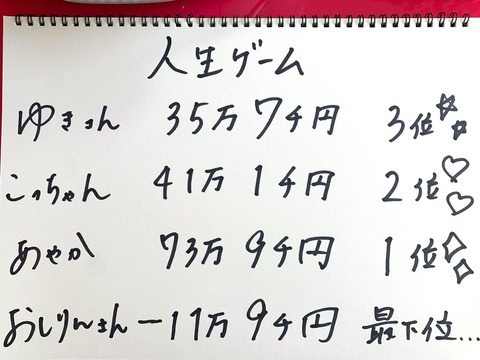 人生ゲーム
ゆきョん 35万7千円 3位
こっちゃん 41万1千円 2位
あやか 73万9千円 1位
おしりんさん -11万9千円 最下位...